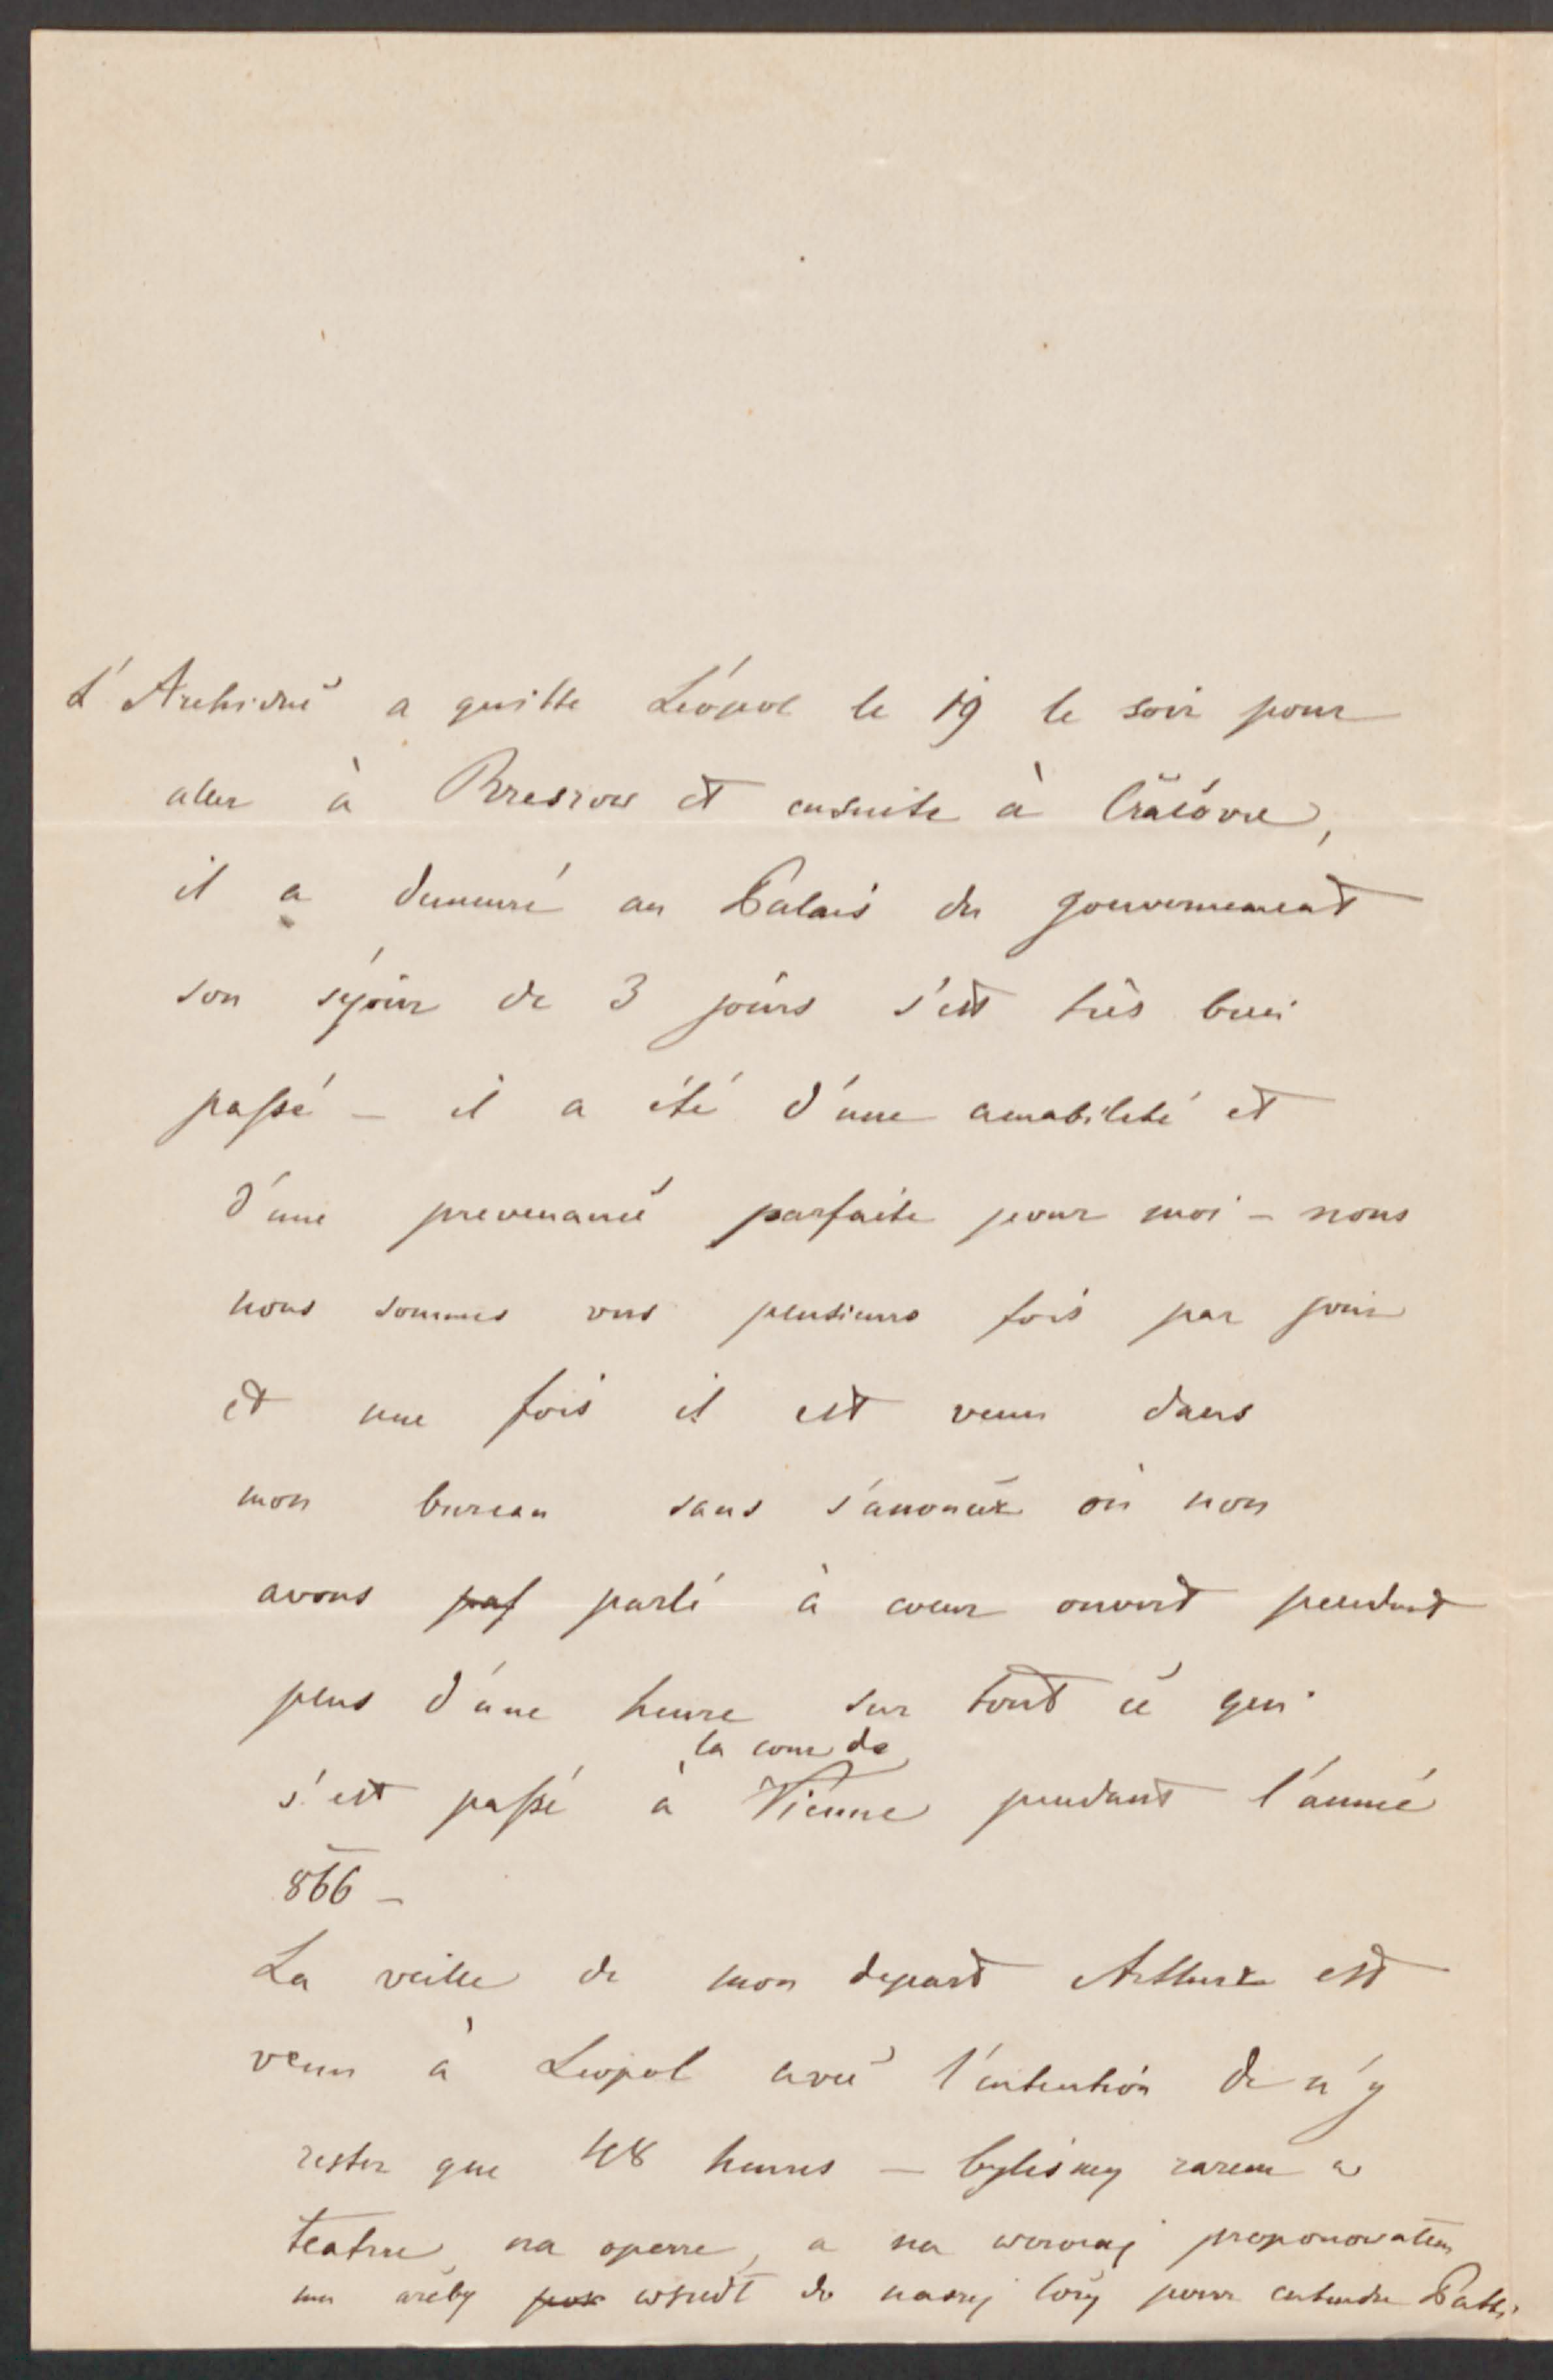 L'Archiduc a quitte Léopol le 19 le soir pour
aller à Rzeszow et ensuite à Cracovie,
il a demeuré au Palais du gouvernement
son séjour de 3 jours s'est très bien
passé – il a été d'une amabilité et
d'une prevenance parfaite pour moi – nous
nous sommes vus plusieurs fois par jour
et une fois il est venu dans
mon bureau sans s'anoncer où nous
avons parlé à coeur ouvert pendant
plus d'une heure sur tout ce qui
la cour de
s'est passé à Vienne pendant l'année
866 –
La veille de mon depart Arthur est
venu à Leopol avec l'intention de n'y
rester que 48 heures – byliśmy razem w
teatrze, na operze, a na wczoraj proponowałem
mu ażeby wszedł do naszej loży pour entendre Patti